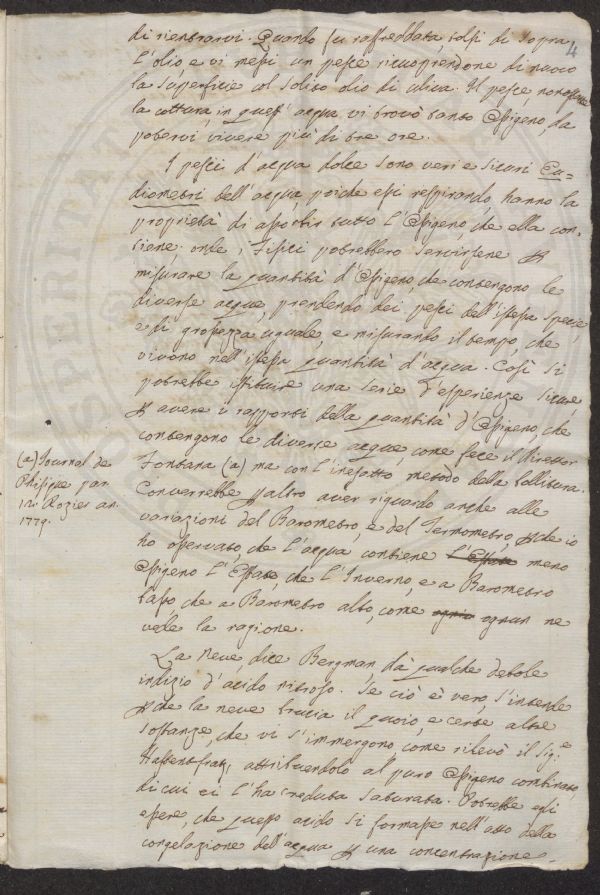 4
di rientrarvi. Quando fu raffreddata, tolsi di sopra
l'olio e vi messi un pesce ricuoprendone di nuovo
la superficie col solito olio di uliva. Il pesce, nonostante
la cottura, in quest'acqua vi trovò tanto Ossigeno, da
potervi vivere più di tre ore.
I pesci d'acqua dolce sono veri e sicuri Eu-
diometri dell'acqua, poiche essi respirando, hanno la
proprietà di assorbir tutto l'Ossigeno, che ella con-
tiene; onde i Fisici potrebbero servirsene p
misurare la quantità d'Ossigeno, che contengono le
diverse acque, prendendo dei pesci dell'istessa specie,
e di grossezza uguale, e misurando il tempo, che
vivono nell'istessa quantità d'acqua. Così si
potrebbe istituire una serie d'esperienze sicure,
p avere i rapporti della quantità d'Ossigeno, che
contengono le diverse acque, come fece il Direttor
Fontana (a) ma con l'inesatto metodo della bollitura.
Converrebbe p altro aver riguardo anche alle
variazioni del Barometro, e del Termometro, pche io
ho osservato, che l'acqua contiene l'Estate meno
Ossigeno l'Estate, che l'Inverno, e a Barometro
basso, che a Barometro alto, come ognun ne
vede la ragione.
(a) Journal de
Phisique par
Rozier an.
1779.
La Neve, dice Bergman, dà qualche debole
indizio d'acido nitroso. Se ciò è vero, s'intende
pche la neve brucia il quoio, e certe altre
sostanze, che vi s'immergono, come rilevò il Sig.e
Hassenfratz, attribuendolo al puro Ossigeno combinato,
di cui ei l'ha creduta saturata. Potrebbe egli
essere, che questo acido si formasse nell'atto della
congelazione dell'acqua p una concentrazione